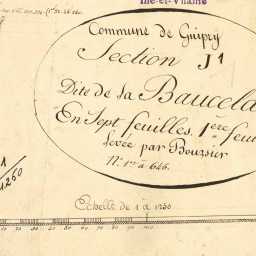 Ille-et-Vilaine
Commune de Guipry
Section J1
Dite de la Baucela
En Sept feuilles, 1ère feu
Levée par Boursier
Nos 1er à 646.
1
1250
Echelle de 1 à 1250